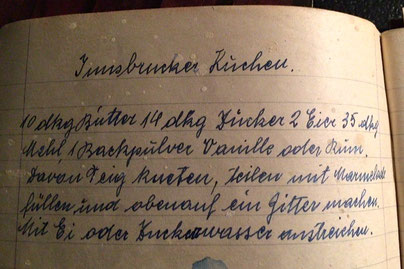 Innsbrucker Kuchen.
10 dkg Butter 14 dkg Zucker 2 Eier 35 dkg
Mehl 1 Backpulver Vanille oder Rum.
davon Teig kneten, teilen mit Marmelade
füllen und obenauf ein Gitter machen.
Mit Ei oder Zuckerwasser anstreichen.